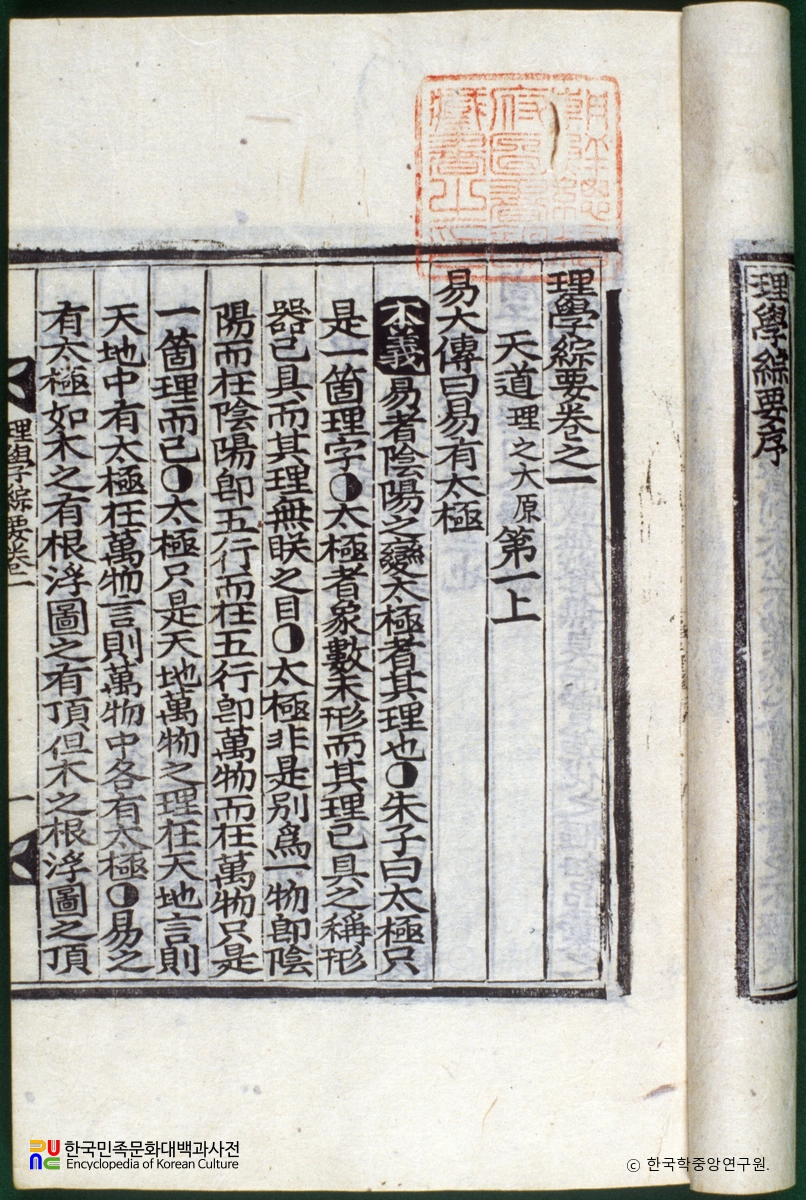 理學綜要序
朝鮮總督
府圖書館
藏書之印
理學綜要卷之一
天道理之大原第一上
易大傳曰易有太極
本義易者陰陽之變太極者其理也◑朱子曰太極只
是一箇理字◑太極者象數未形而其理已具之稱形
器已具而其理無眹之目◑太極非是別爲一物卽陰
陽而在陰陽卽五行而在五行卽萬物而在萬物只是
一箇理而已◑太極只是天地萬物之理在天地言則
天地中有太極在萬物言則萬物中各有太極◑易之
有太極如木之有根浮圖之有頂但木之根浮圖之頂
理學綜要卷一
一
한국민족문화대백과사전
Encyclopedia of Korean Culture
ⓒ 한국학중앙연구원.